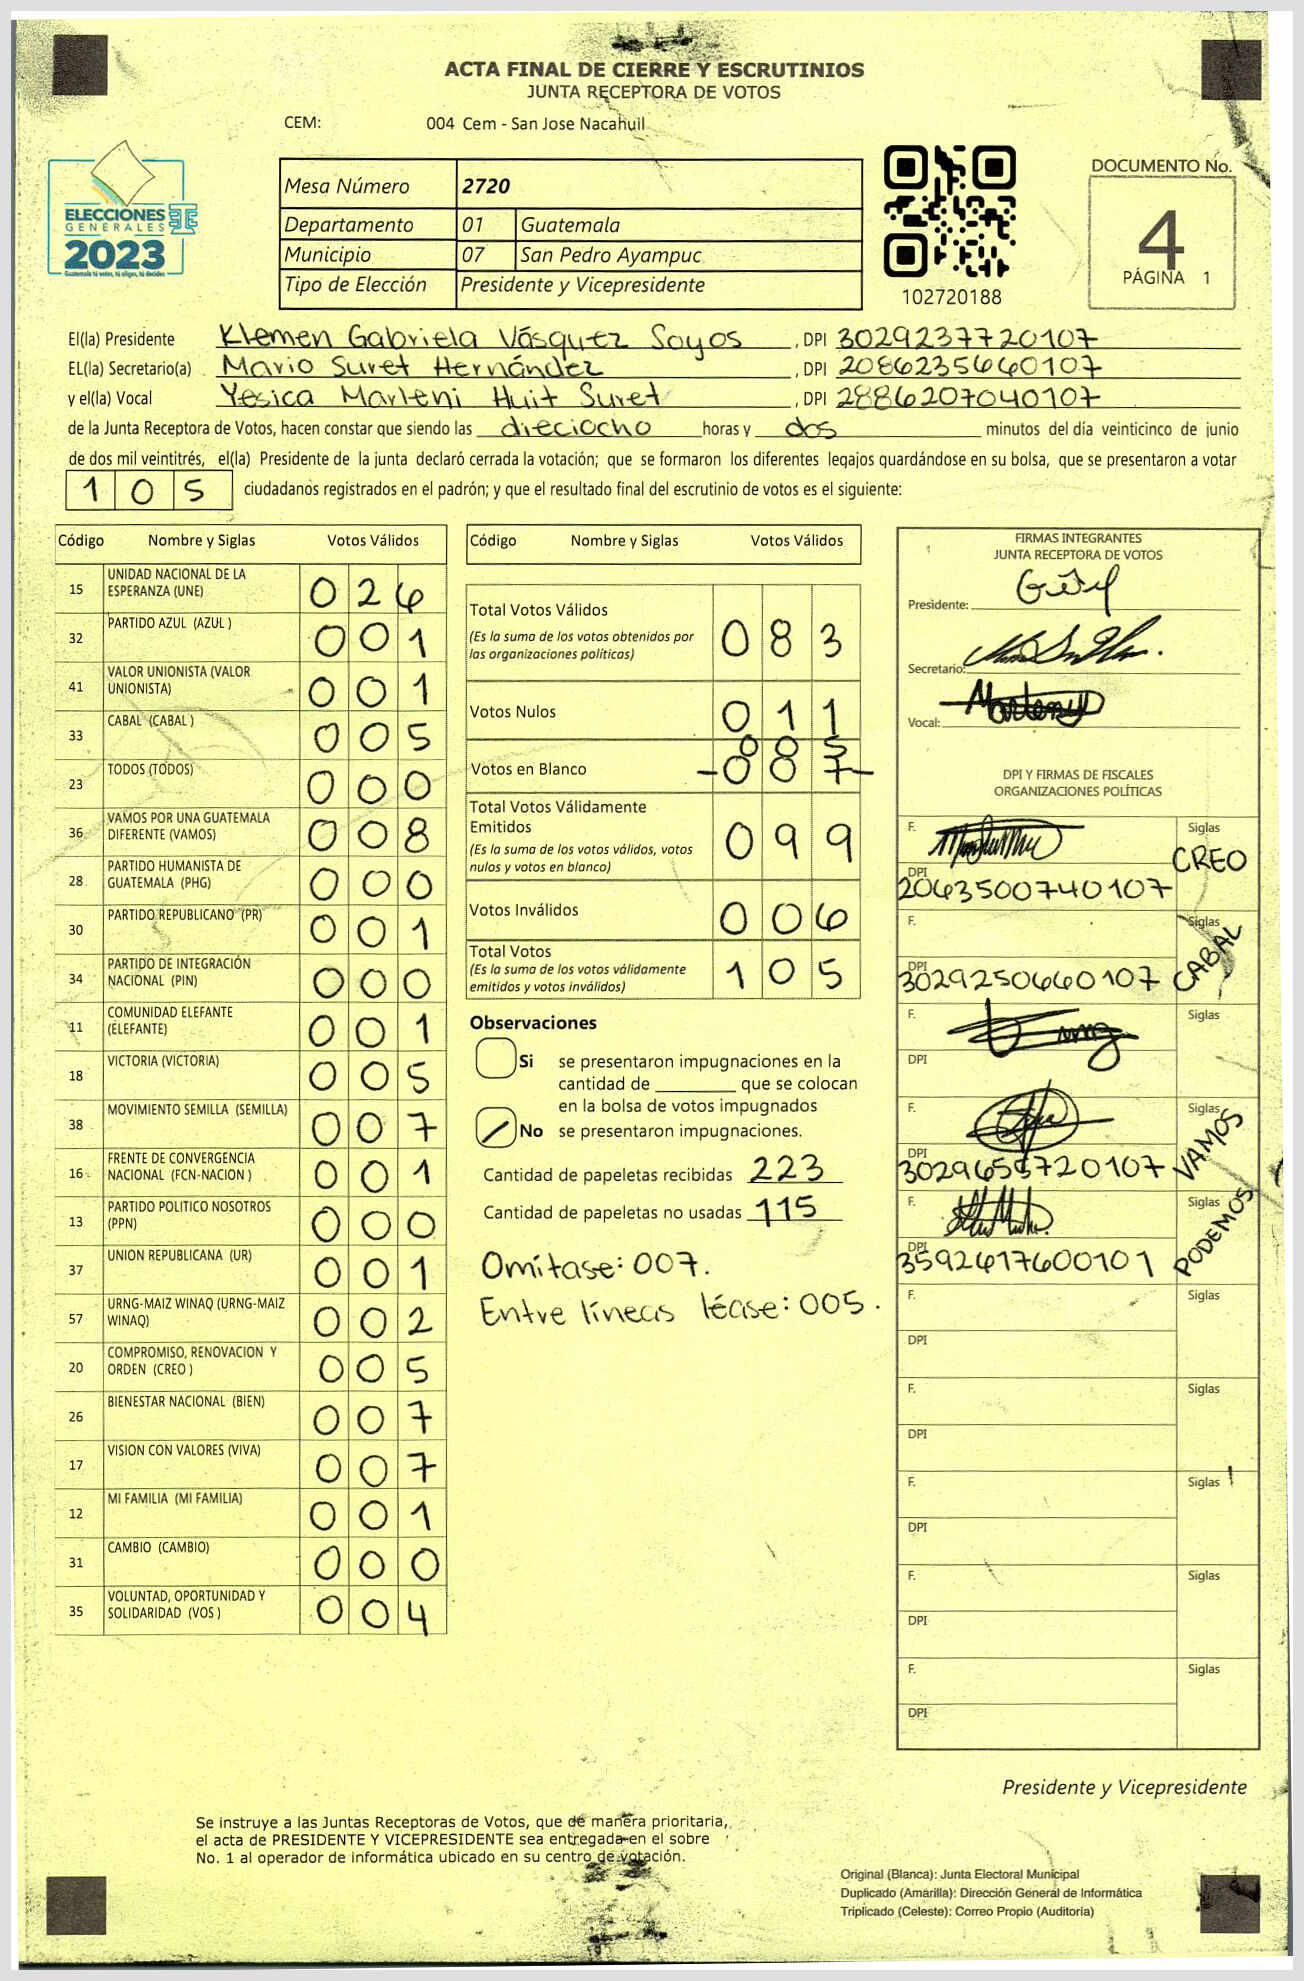 ACTA FINAL DE CIERRE Y ESCRUTINIOS
JUNTA RECEPTORA DE VOTOS
CEM: 004 Cem - San Jose Nacahuil
ELECCIONES
GENERALES
2023
Guatemala tú votas, tú eliges, tú decides
Mesa Número 2720
Departamento 01 Guatemala
Municipio 07 San Pedro Ayampuc
Tipo de Elección Presidente y Vicepresidente
102720188
DOCUMENTO No.
4
PÁGINA 1
El(la) Presidente Klemen Gabriela Vásquez Soyos, DPI 3029237720107
EL(la) Secretario(a) Mario Suret Hernández, DPI 2086235660107
y el(la) Vocal Yesica Marleni Huit Suret, DPI 2886207040107
de la Junta Receptora de Votos, hacen constar que siendo las dieciocho horas y dos minutos del día veinticinco de junio
de dos mil veintitrés, el(la) Presidente de la junta declaró cerrada la votación; que se formaron los diferentes legajos guardándose en su bolsa, que se presentaron a votar
105 ciudadanos registrados en el padrón; y que el resultado final del escrutinio de votos es el siguiente:
Código Nombre y Siglas Votos Válidos
15 UNIDAD NACIONAL DE LA ESPERANZA (UNE) 026
32 PARTIDO AZUL (AZUL ) 001
41 VALOR UNIONISTA (VALOR UNIONISTA) 001
33 CABAL (CABAL ) 005
23 TODOS (TODOS) 000
36 VAMOS POR UNA GUATEMALA DIFERENTE (VAMOS) 008
28 PARTIDO HUMANISTA DE GUATEMALA (PHG) 000
30 PARTIDO REPUBLICANO (PR) 001
34 PARTIDO DE INTEGRACIÓN NACIONAL (PIN) 000
11 COMUNIDAD ELEFANTE (ELEFANTE) 001
18 VICTORIA (VICTORIA) 005
38 MOVIMIENTO SEMILLA (SEMILLA) 007
16 FRENTE DE CONVERGENCIA NACIONAL (FCN-NACION ) 001
13 PARTIDO POLITICO NOSOTROS (PPN) 000
37 UNION REPUBLICANA (UR) 001
57 URNG-MAIZ WINAQ (URNG-MAIZ WINAQ) 002
20 COMPROMISO, RENOVACION Y ORDEN (CREO ) 005
26 BIENESTAR NACIONAL (BIEN) 007
17 VISION CON VALORES (VIVA) 007
12 MI FAMILIA (MI FAMILIA) 001
31 CAMBIO (CAMBIO) 000
35 VOLUNTAD, OPORTUNIDAD Y SOLIDARIDAD (VOS ) 004
Código Nombre y Siglas Votos Válidos
Total Votos Válidos 083
(Es la suma de los votos obtenidos por
las organizaciones políticas)
Votos Nulos 011
005
Votos en Blanco -007-
Total Votos Válidamente
Emitidos 099
(Es la suma de los votos válidos, votos
nulos y votos en blanco)
Votos Inválidos 006
Total Votos 105
(Es la suma de los votos válidamente
emitidos y votos inválidos)
Observaciones
Si se presentaron impugnaciones en la
cantidad de ________ que se colocan
en la bolsa de votos impugnados
No se presentaron impugnaciones.
Cantidad de papeletas recibidas 223
Cantidad de papeletas no usadas 115
Omítase: 007.
Entre líneas léase: 005.
FIRMAS INTEGRANTES
JUNTA RECEPTORA DE VOTOS
Presidente:
Secretario:
Vocal:
DPI Y FIRMAS DE FISCALES
ORGANIZACIONES POLÍTICAS
F. Siglas CREO
DPI 2063500740107
F. Siglas CABAL
DPI 3029250660107
F. Siglas
DPI
F. Siglas VAMOS
DPI 3029655720107
F. Siglas PODEMOS
DPI 3592617600101
F. Siglas
DPI
F. Siglas
DPI
F. Siglas
DPI
F. Siglas
DPI
F. Siglas
DPI
Presidente y Vicepresidente
Se instruye a las Juntas Receptoras de Votos, que de manera prioritaria,
el acta de PRESIDENTE Y VICEPRESIDENTE sea entregada en el sobre
No. 1 al operador de informática ubicado en su centro de votación.
Original (Blanca): Junta Electoral Municipal
Duplicado (Amarilla): Dirección General de Informática
Triplicado (Celeste): Correo Propio (Auditoría)